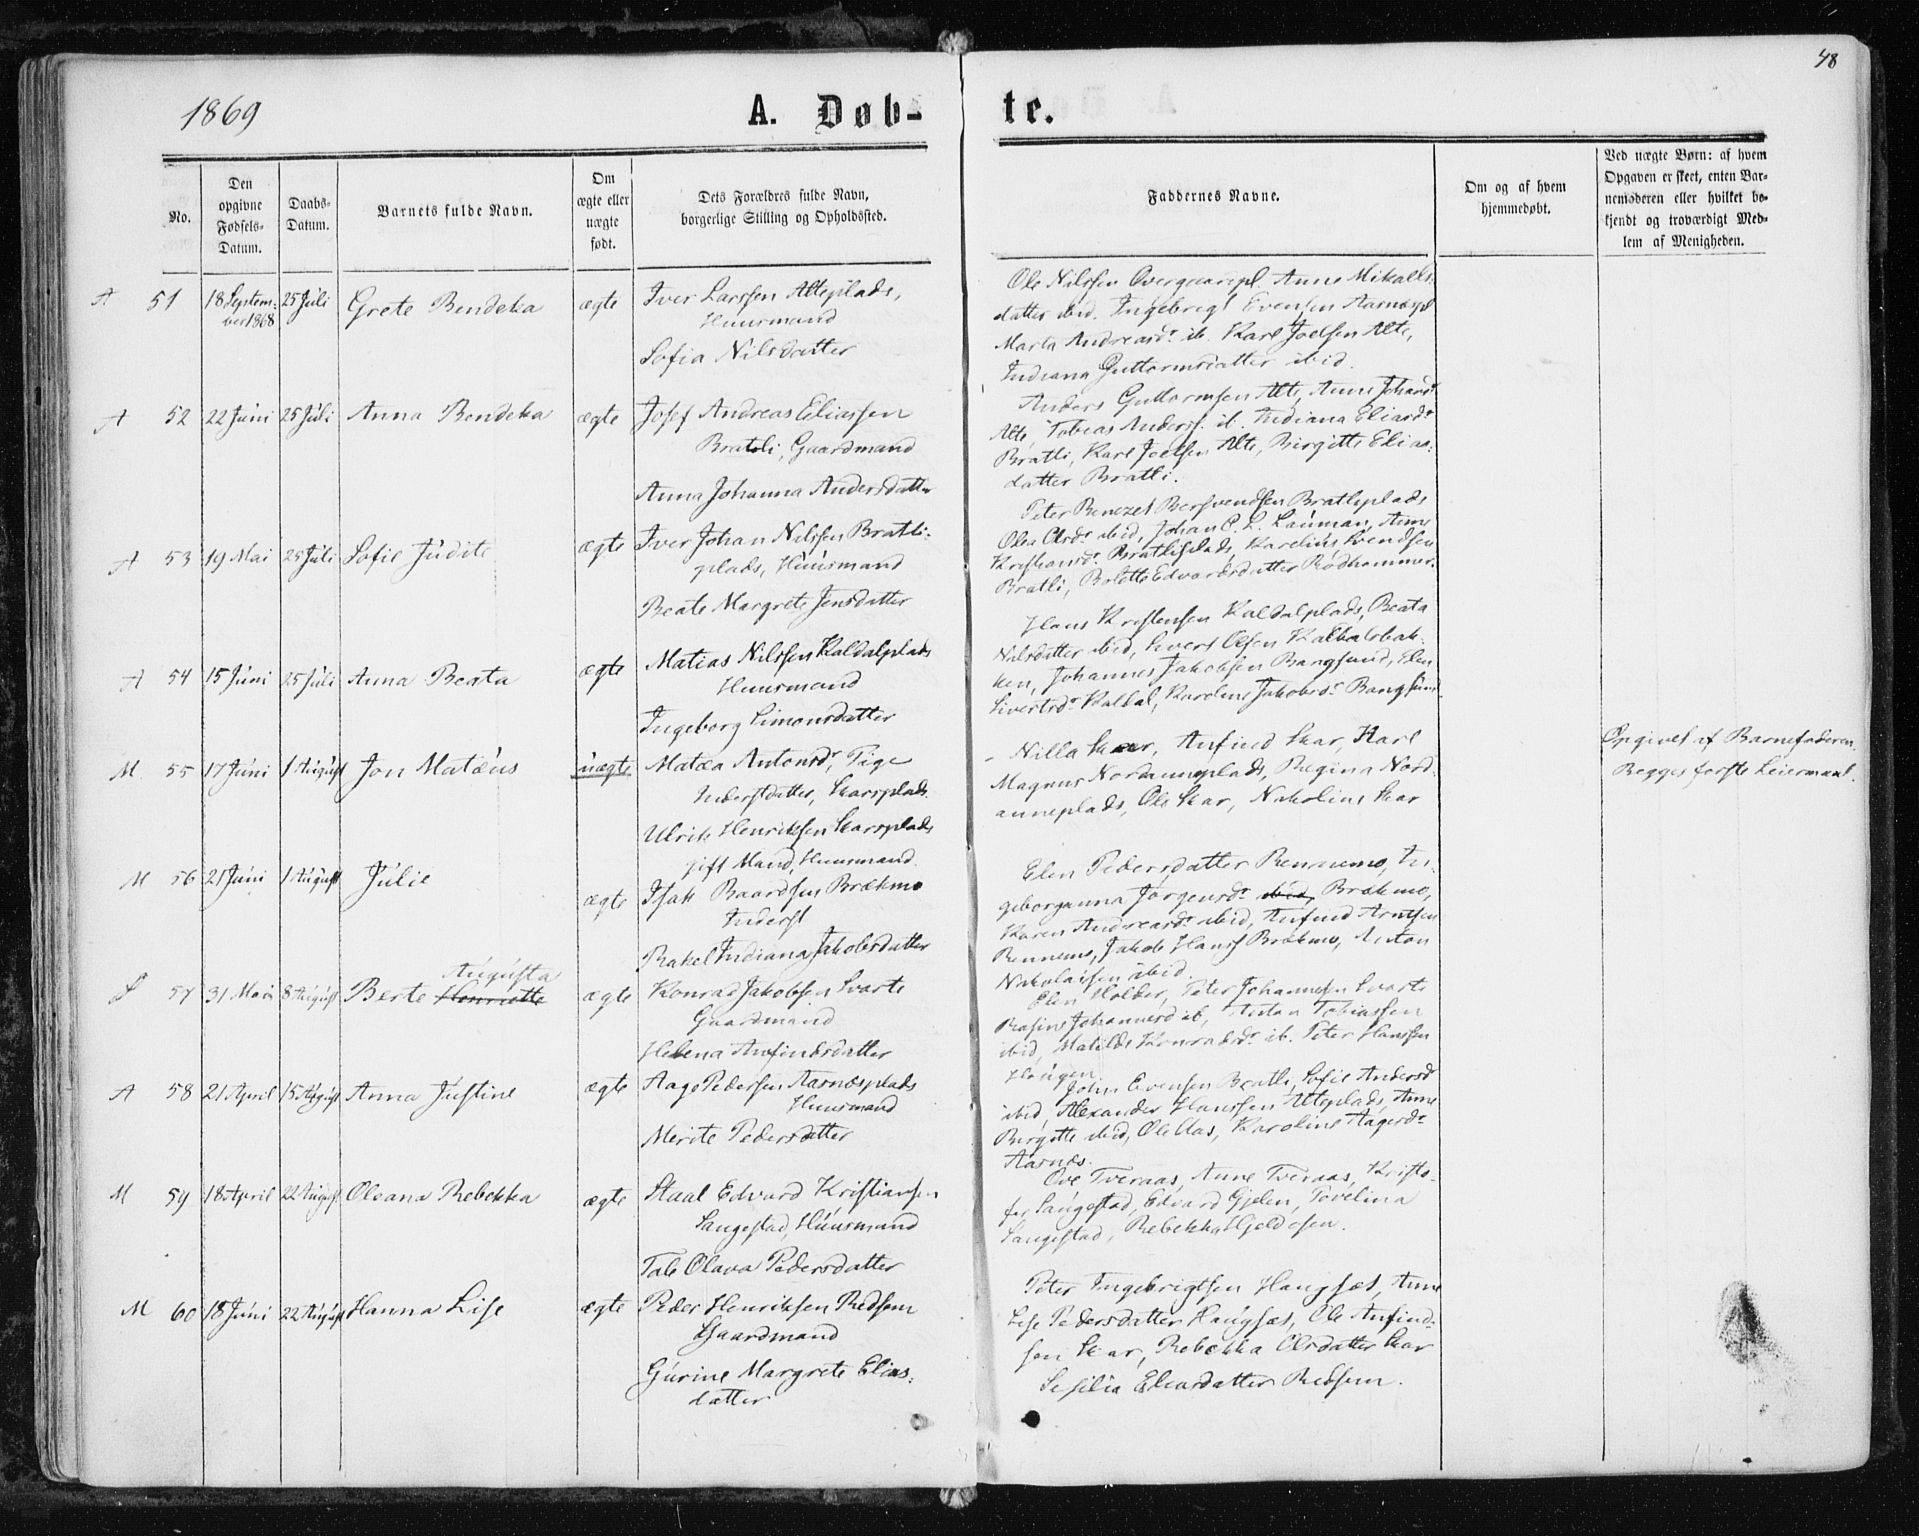 48
1869
A. Døb-
te.
No.
Den opgivne Fødsels-Datum.
Daabs-Datum.
Barnets fulde Navn.
Om ægte eller uægte født.
Dets Forældres fulde Navn, borgerlige Stilling og Opholdssted.
Faddernes Navne.
Om og af hvem hjemmedøbt.
Ved uægte Børn: af hvem Opgaven er skeet, enten Barnemoderen eller hvilket bekjendt og troværdigt Medlem af Menigheden.
A 51 18 September 1868 25 Juli Grete Bendeka ægte Iver Larssen Alteplads,
Huusmand
Sofia Nilsdatter
Ole Nilssen Overgaardpl. Anne Mikals-
datter ibid. Ingebrigt Evensen Aarnæspl
Marta Andreasdr ib. Karl Joelsen Alte,
Indiana Guttormsdatter ibid.
A 52 22 Juni 25 Juli Anna Bendeka ægte Josef Andreas Eliassen
Bratli, Gaardmand
Anna Johanna Andersdatter
Anders Guttormsen Alte, Anne Johansdr
Alte, Tobias Anderss. ib. Indiana Eliasdr
Bratli, Karl Joelsen Alte, Birgitte Elias-
datter Bratli.
A 53 19 Mai 25 Juli Sofie Judite ægte Iver Johan Nilssen Bratli-
plads, Huusmand
Beate Margrete Jensdatter
Peter Benezet Bersvendsen Bratliplads
Olea Olsdr ibid, Johan C. L. Lauman, Anne
Kristiansdr Bratliplads, Karelius Svendsen
Bratli, Bolette Edvardsdatter Rødhammer.
A 54 15 Juni 25 Juli Anna Beata ægte Matias Nilssen Kaldalplads
Huusmand
Ingeborg Simonsdatter
Hans Kristensen Kaldalplads, Beata
Nilsdatter ibid, Sivert Olsen Kaldalsbak-
ken, Johannes Jakobsen Bangsund, Elen
Sivertsdr Kaldal, Karoline Jakobsdr Bangsund
M. 55 17 Juni 1 August Jon Matæus uægte Matæa Antonsdr, Pige
Inderstdatter, Skarsplads.
Ulrik Henriksen Skarsplads
gift Mand, Huusmand.
Nilla Skar, Anfind Skar, Karl
Magnus Nordanneplads, Regina Nord-
anneplads, Ole Skar, Nikoline Skar
Opgivet af Barnefaderen.
Begges første Leiermaal.
M 56 21 Juni 1 August Julie ægte Isak Baardsen Brækmo
Inderst
Rakel Indiana Jakobsdatter
Elen Pedersdatter Rennemo, In-
geborganna Jørgensdr ibid, Brækmo,
Karen Andreasdr ibid, Anfind Arntsen
Rennemo, Jakob Hanss Brækmo, Anton
Nikolaisen ibid.
57 31 Mai 8 August Berte Henriette Augusta ægte Konrad Jakobsen Svarte
Gaardmand
Helena Anfindsdatter
Elen Holder, Peter Johannesen Svarte
Rasine Johannesd ib, Anton Tobiassen
ibid, Matilde Konradsdr ib. Peter Hanssen
Haugen
A 58 21 April 15 August Anna Justine ægte Aage Pedersen Aarnæsplads
Huusmand
Merite Pedersdatter
John Evensen Bratli, Sofie Andersd
ibid, Alexander Hanssen Alteplads, Anne
Birgitte ibid, Ole Aas, Karoline Aagesdr
Aarnæs.
M 59 18 April 22 August Oleana Rebekka ægte Staal Edvard Kristiansen
Saugestad, Huusmand
Tale Olava Pedersdatter
Ove Tveraas, Anne Tveraas, Kristo-
fer Saugestad, Edvard Gjelen, Tovelina
Saugestad, Rebekka Hjeldosen.
M 60 18 Juni 22 August Hanna Lise ægte Peder Henriksen Redsem
Gaardmand
Gurine Margrete Elias-
datter
Peter Ingebrigtsen Haugsæs, Anne
Lise Pedersdatter Haugsæs, Ole Anfind-
sen Skar, Rebekka Olsdatter Skar
Sesilia Eliasdatter Redsem.